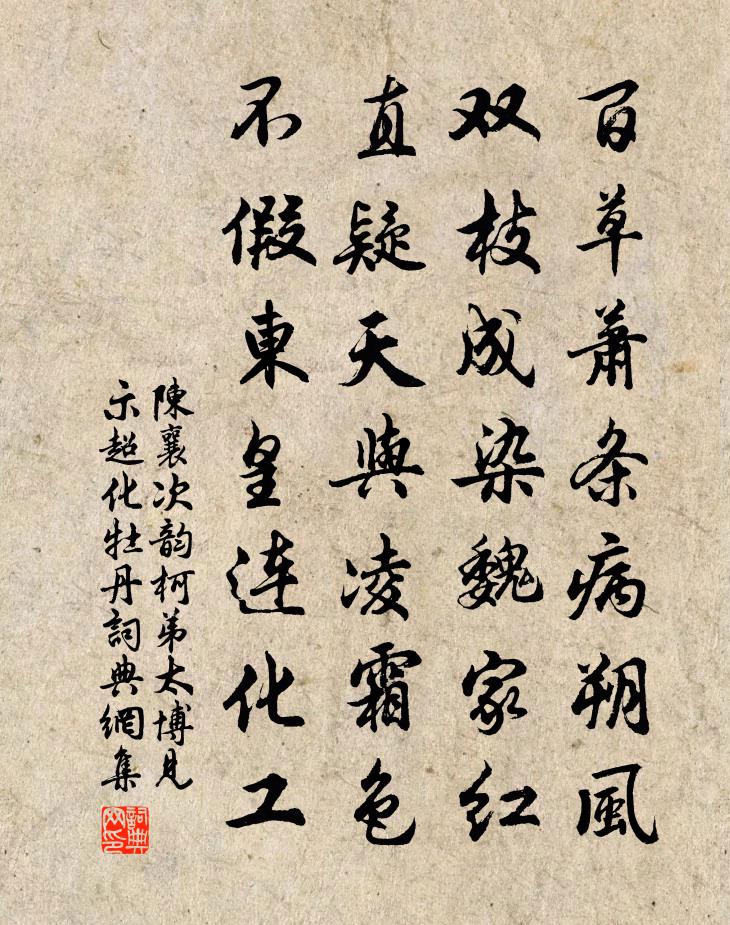 百草萧条病朔風
双枝成染魏家红
直疑天與凌霜色
不假東皇連化工
陳襄次韵柯弟太博見
示超化牡丹詞典網集
詞典网印